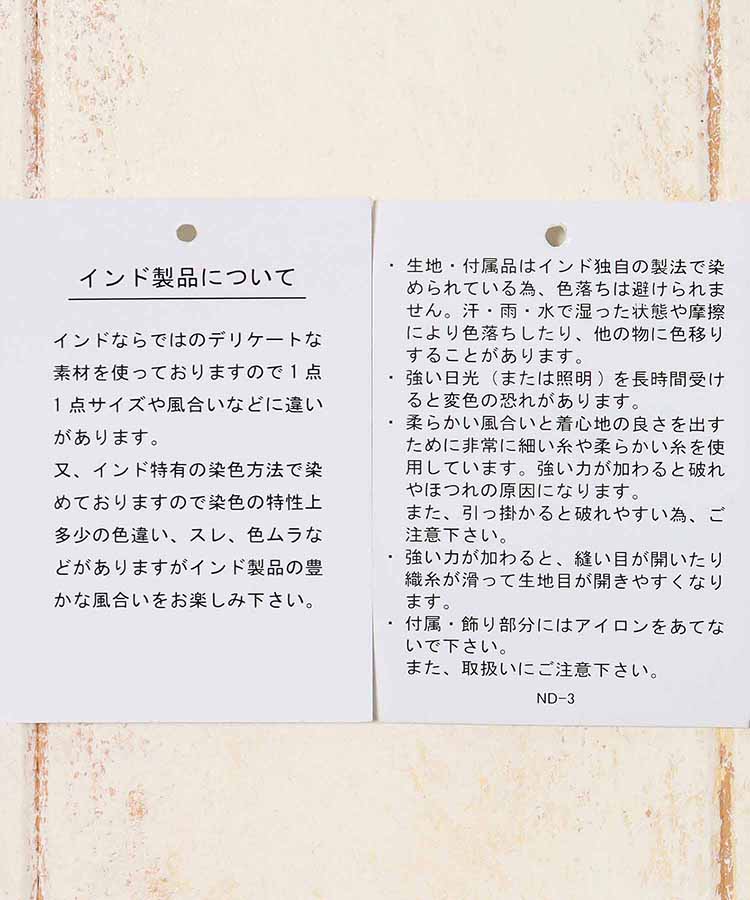 インド製品について
インドならではのデリケートな
素材を使っておりますので1点
1点サイズや風合いなどに違い
があります。
又、インド特有の染色方法で染
めておりますので染色の特性上
多少の色違い、スレ、色ムラな
どがありますがインド製品の豊
かな風合いをお楽しみ下さい。
・生地・付属品はインド独自の製法で染
められている為、色落ちは避けられま
せん。汗・雨・水で湿った状態や摩擦
により色落ちしたり、他の物に色移り
することがあります。
・強い日光（または照明）を長時間受け
ると変色の恐れがあります。
・柔らかい風合いと着心地の良さを出す
ために非常に細い糸や柔らかい糸を使
用しています。強い力が加わると破れ
やほつれの原因になります。
また、引っ掛かると破れやすい為、ご
注意下さい。
・強い力が加わると、縫い目が開いたり
織糸が滑って生地目が開きやすくなり
ます。
・付属・飾り部分にはアイロンをあてな
いで下さい。
また、取扱いにご注意下さい。
ND-3